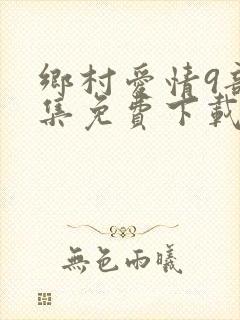 鄉村愛情9
集免費下載
無色雨曦